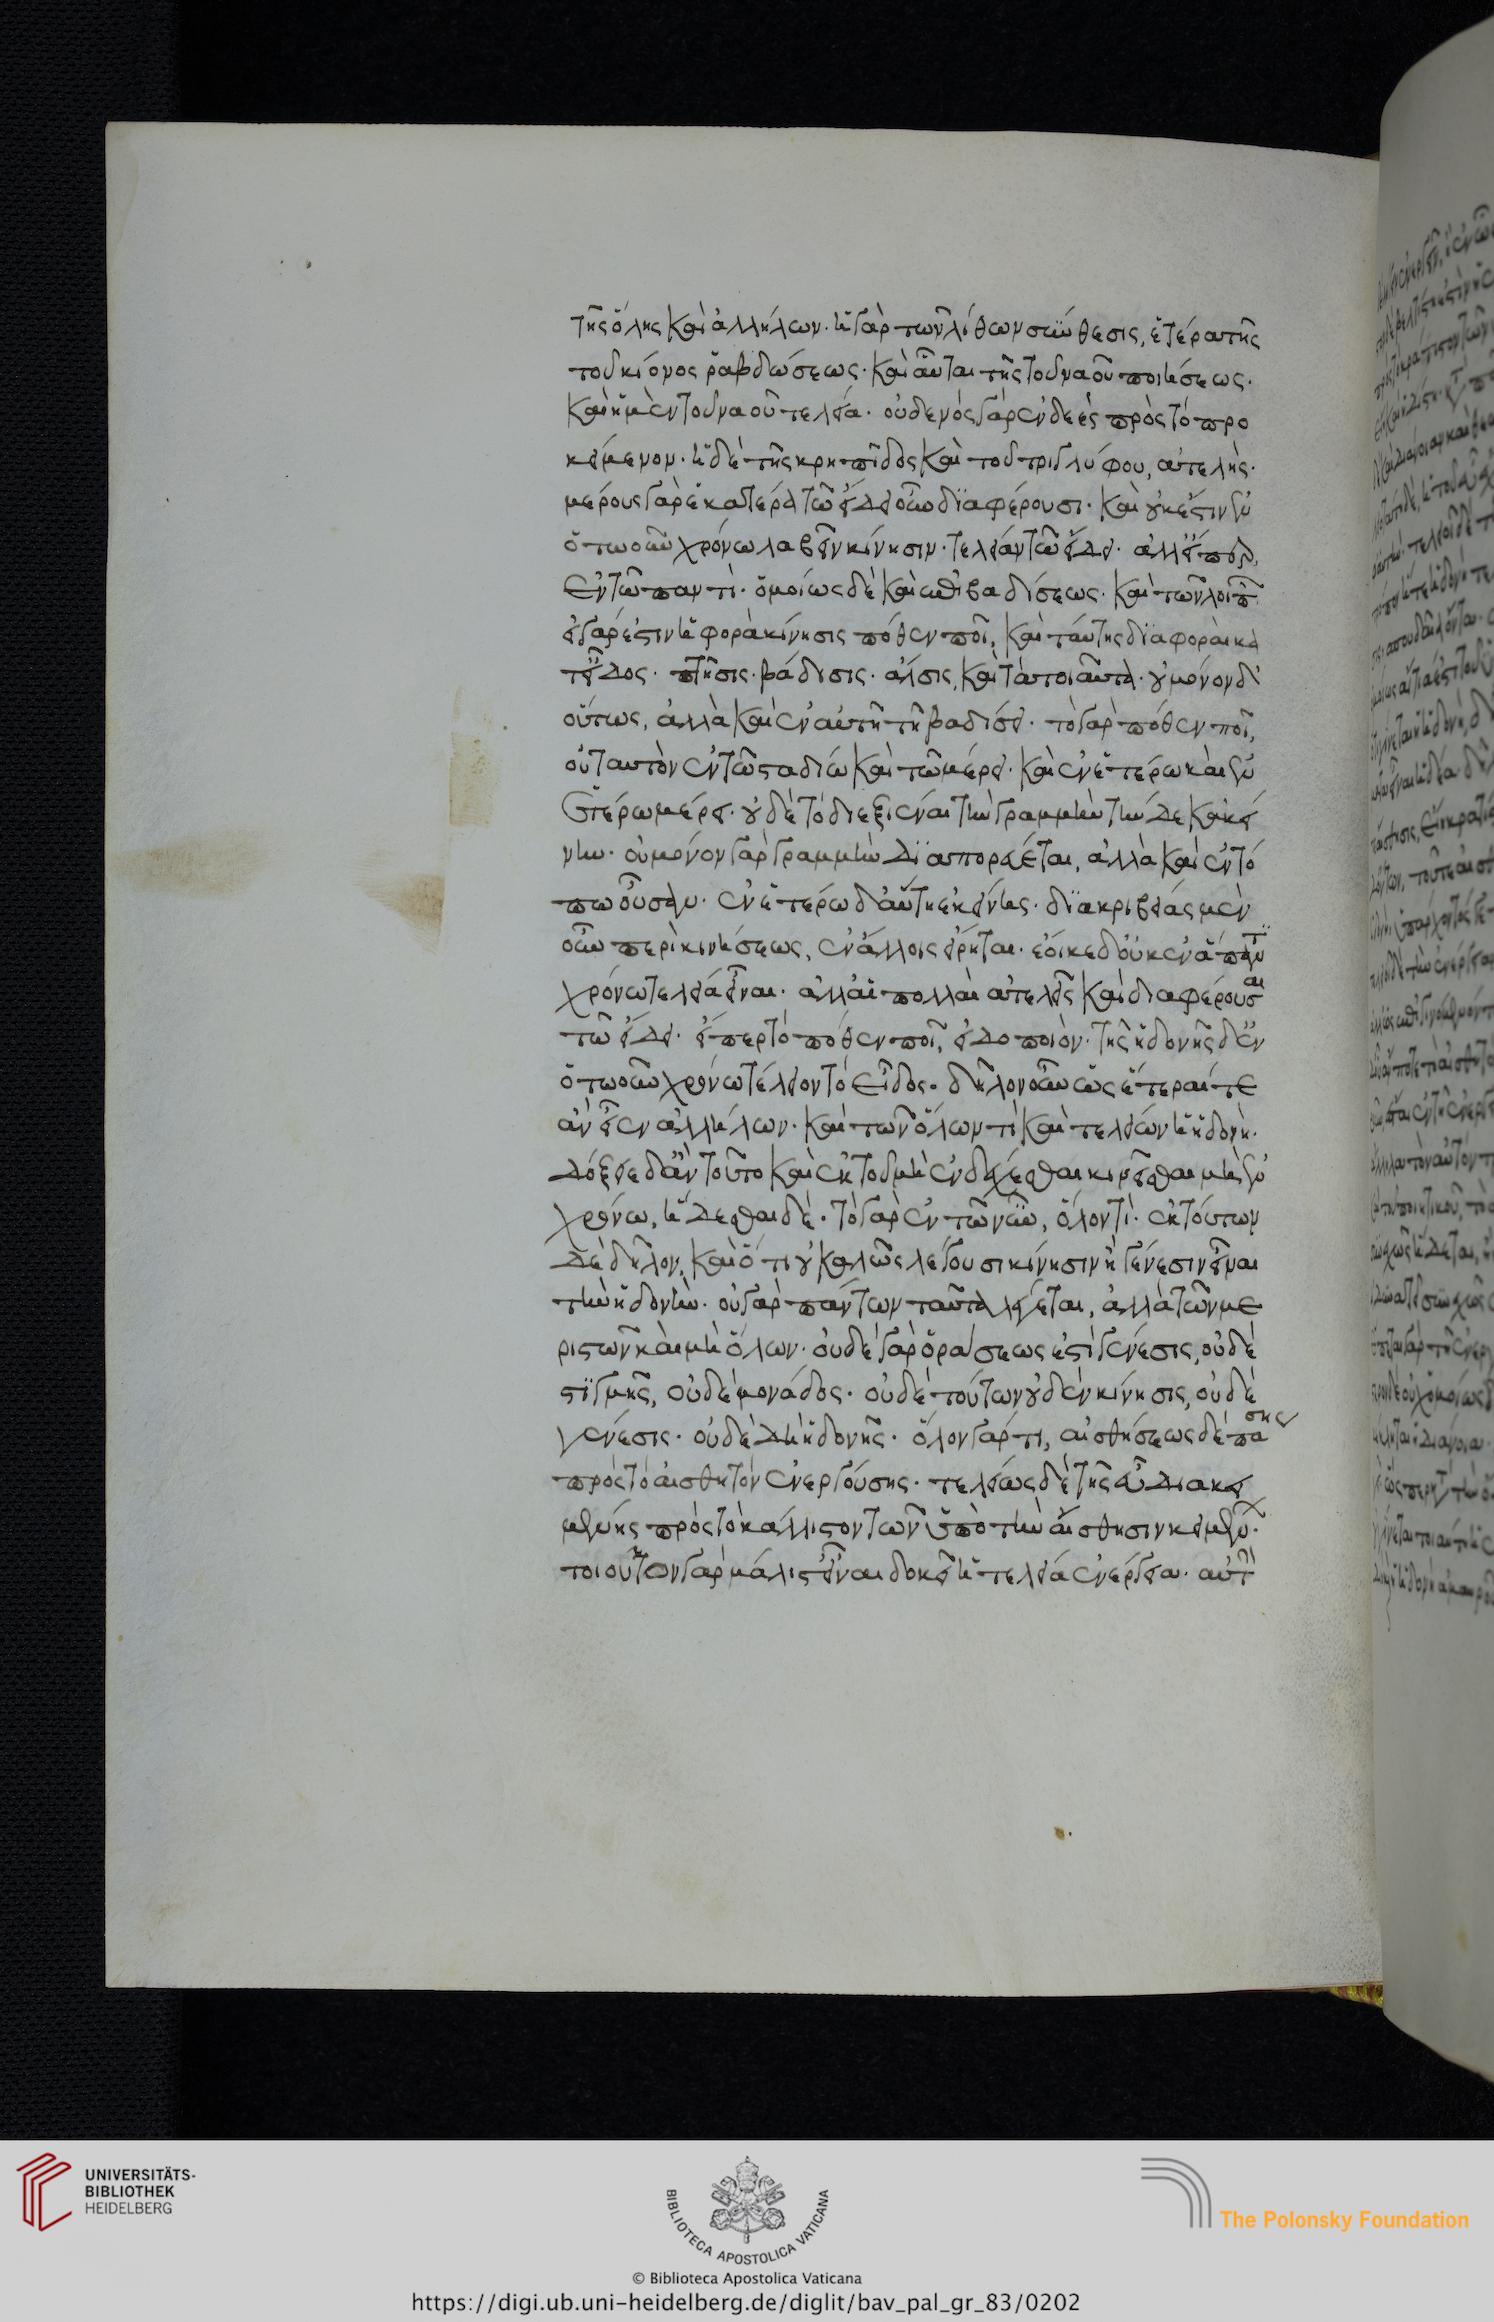 τῆς ὅλης καὶ ἀλλήλων· ἡ γὰρ τῶν λίθων σύνθεσις, ἑτέρα τῆς
τοῦ κίονος ῥαβδώσεως· καὶ αὗται τῆς τοῦ ναοῦ ποιήσεως·
καὶ ἡ μὲν τοῦ ναοῦ τελεία· οὐδενὸς γὰρ ἐνδεὲς πρὸς τὸ προ
κείμενον· ἡ δὲ τῆς κρηπῖδος καὶ τοῦ τριγλύφου, ἀτελής·
μέρους γὰρ ἑκατέρα τῶ εἴδει οὖν διαφέρουσι· καὶ οὐκ ἔστιν ἐν
ὁτωοῦν χρόνω λαβεῖν κίνησιν τελείαν τῶ εἴδει· ἀλλ' εἴπερ,
ἐν τῶ παντί· ὁμοίως δὲ καὶ ἐπὶ βαδίσεως· καὶ τῶν λοιπῶν
εἰ γάρ ἐστιν ἡ φορὰ κίνησις πόθεν ποῖ, καὶ ταύτης διαφοραὶ κα
τ' εἶδος· πτῆσις· βάδισις· ἅλσις, καὶ τὰ τοιαῦτα· οὐ μόνον δ'
οὕτως, ἀλλὰ καὶ ἐν αὐτῆ τῆ βαδίσει· τὸ γὰρ πόθεν ποῖ,
οὐ ταυτὸν ἐν τῶ σταδίω καὶ τῶ μέρει· καὶ ἐν ἑτέρω καὶ ἐν
ἑτέρω μέρει· οὐδὲ τὸ διεξιέναι τὴν γραμμὴν τήνδε κἀκεί
νην· οὐ μόνον γὰρ γραμμὴν διαπορεύεται, ἀλλὰ καὶ ἐν τό
πω οὖσαν· ἐν ἑτέρω δ' αὕτη ἐκείνης· δι' ἀκριβείας μὲν
οὖν περὶ κινήσεως, ἐν ἄλλοις εἴρηται· ἔοικε δ' οὐκ ἐν ἅπαντι
χρόνω τελεία εἶναι· ἀλλ' αἱ πολλαὶ ἀτελεῖς καὶ διαφέρουσαι
τῶ εἴδει· εἴπερ τὸ πόθεν ποῖ, εἰδοποιόν· τῆς ἡδονῆς δ' ἐν
ὁτωοῦν χρόνω τέλειον τὸ εἶδος· δῆλον οὖν ὡς ἕτεραί τε
ἂν εἶεν ἀλλήλων· καὶ τῶν ὅλων τὶ καὶ τελείων ἡ ἡδονή·
δόξειε δ' ἂν τοῦτο καὶ ἐκ τοῦ μὴ ἐνδέχεσθαι κινεῖσθαι μὴ ἐν
χρόνω, ἥδεσθαι δέ· τὸ γὰρ ἐν τῶ νῦν, ὅλον τί· ἐκ τούτων
δὲ δῆλον, καὶ ὅτι οὐ καλῶς λέγουσι κίνησιν ἢ γένεσιν εἶναι
τὴν ἡδονήν· οὐ γὰρ πάντων ταῦτα λέγεται, ἀλλὰ τῶν με
ριστῶν καὶ μὴ ὅλων· οὐδὲ γὰρ ὁράσεως ἐστὶ γένεσις, οὐδὲ
στιγμῆς, οὐδὲ μονάδος· οὐδὲ τούτων οὐδὲν κίνησις, οὐδὲ
γένεσις· οὐδὲ δὴ ἡδονῆς· ὅλον γάρ τι, αἰσθήσεως δὲ πάσης
πρὸς τὸ αἰσθητὸν ἐνεργούσης· τελείως δὲ τῆς εὖ διακει
μένης πρὸς τὸ κάλλιστον τῶν ὑπὸ τὴν αἴσθησιν κειμένων·
τοιοῦτον γὰρ μάλιστ' εἶναι δοκεῖ ἡ τελεία ἐνέργεια· αὐτὴν
UNIVERSITÄTS-
BIBLIOTHEK
HEIDELBERG
BIBLIOTECA APOSTOLICA VATICANA
© Biblioteca Apostolica Vaticana
The Polonsky Foundation
https://digi.ub.uni-heidelberg.de/diglit/bav_pal_gr_83/0202